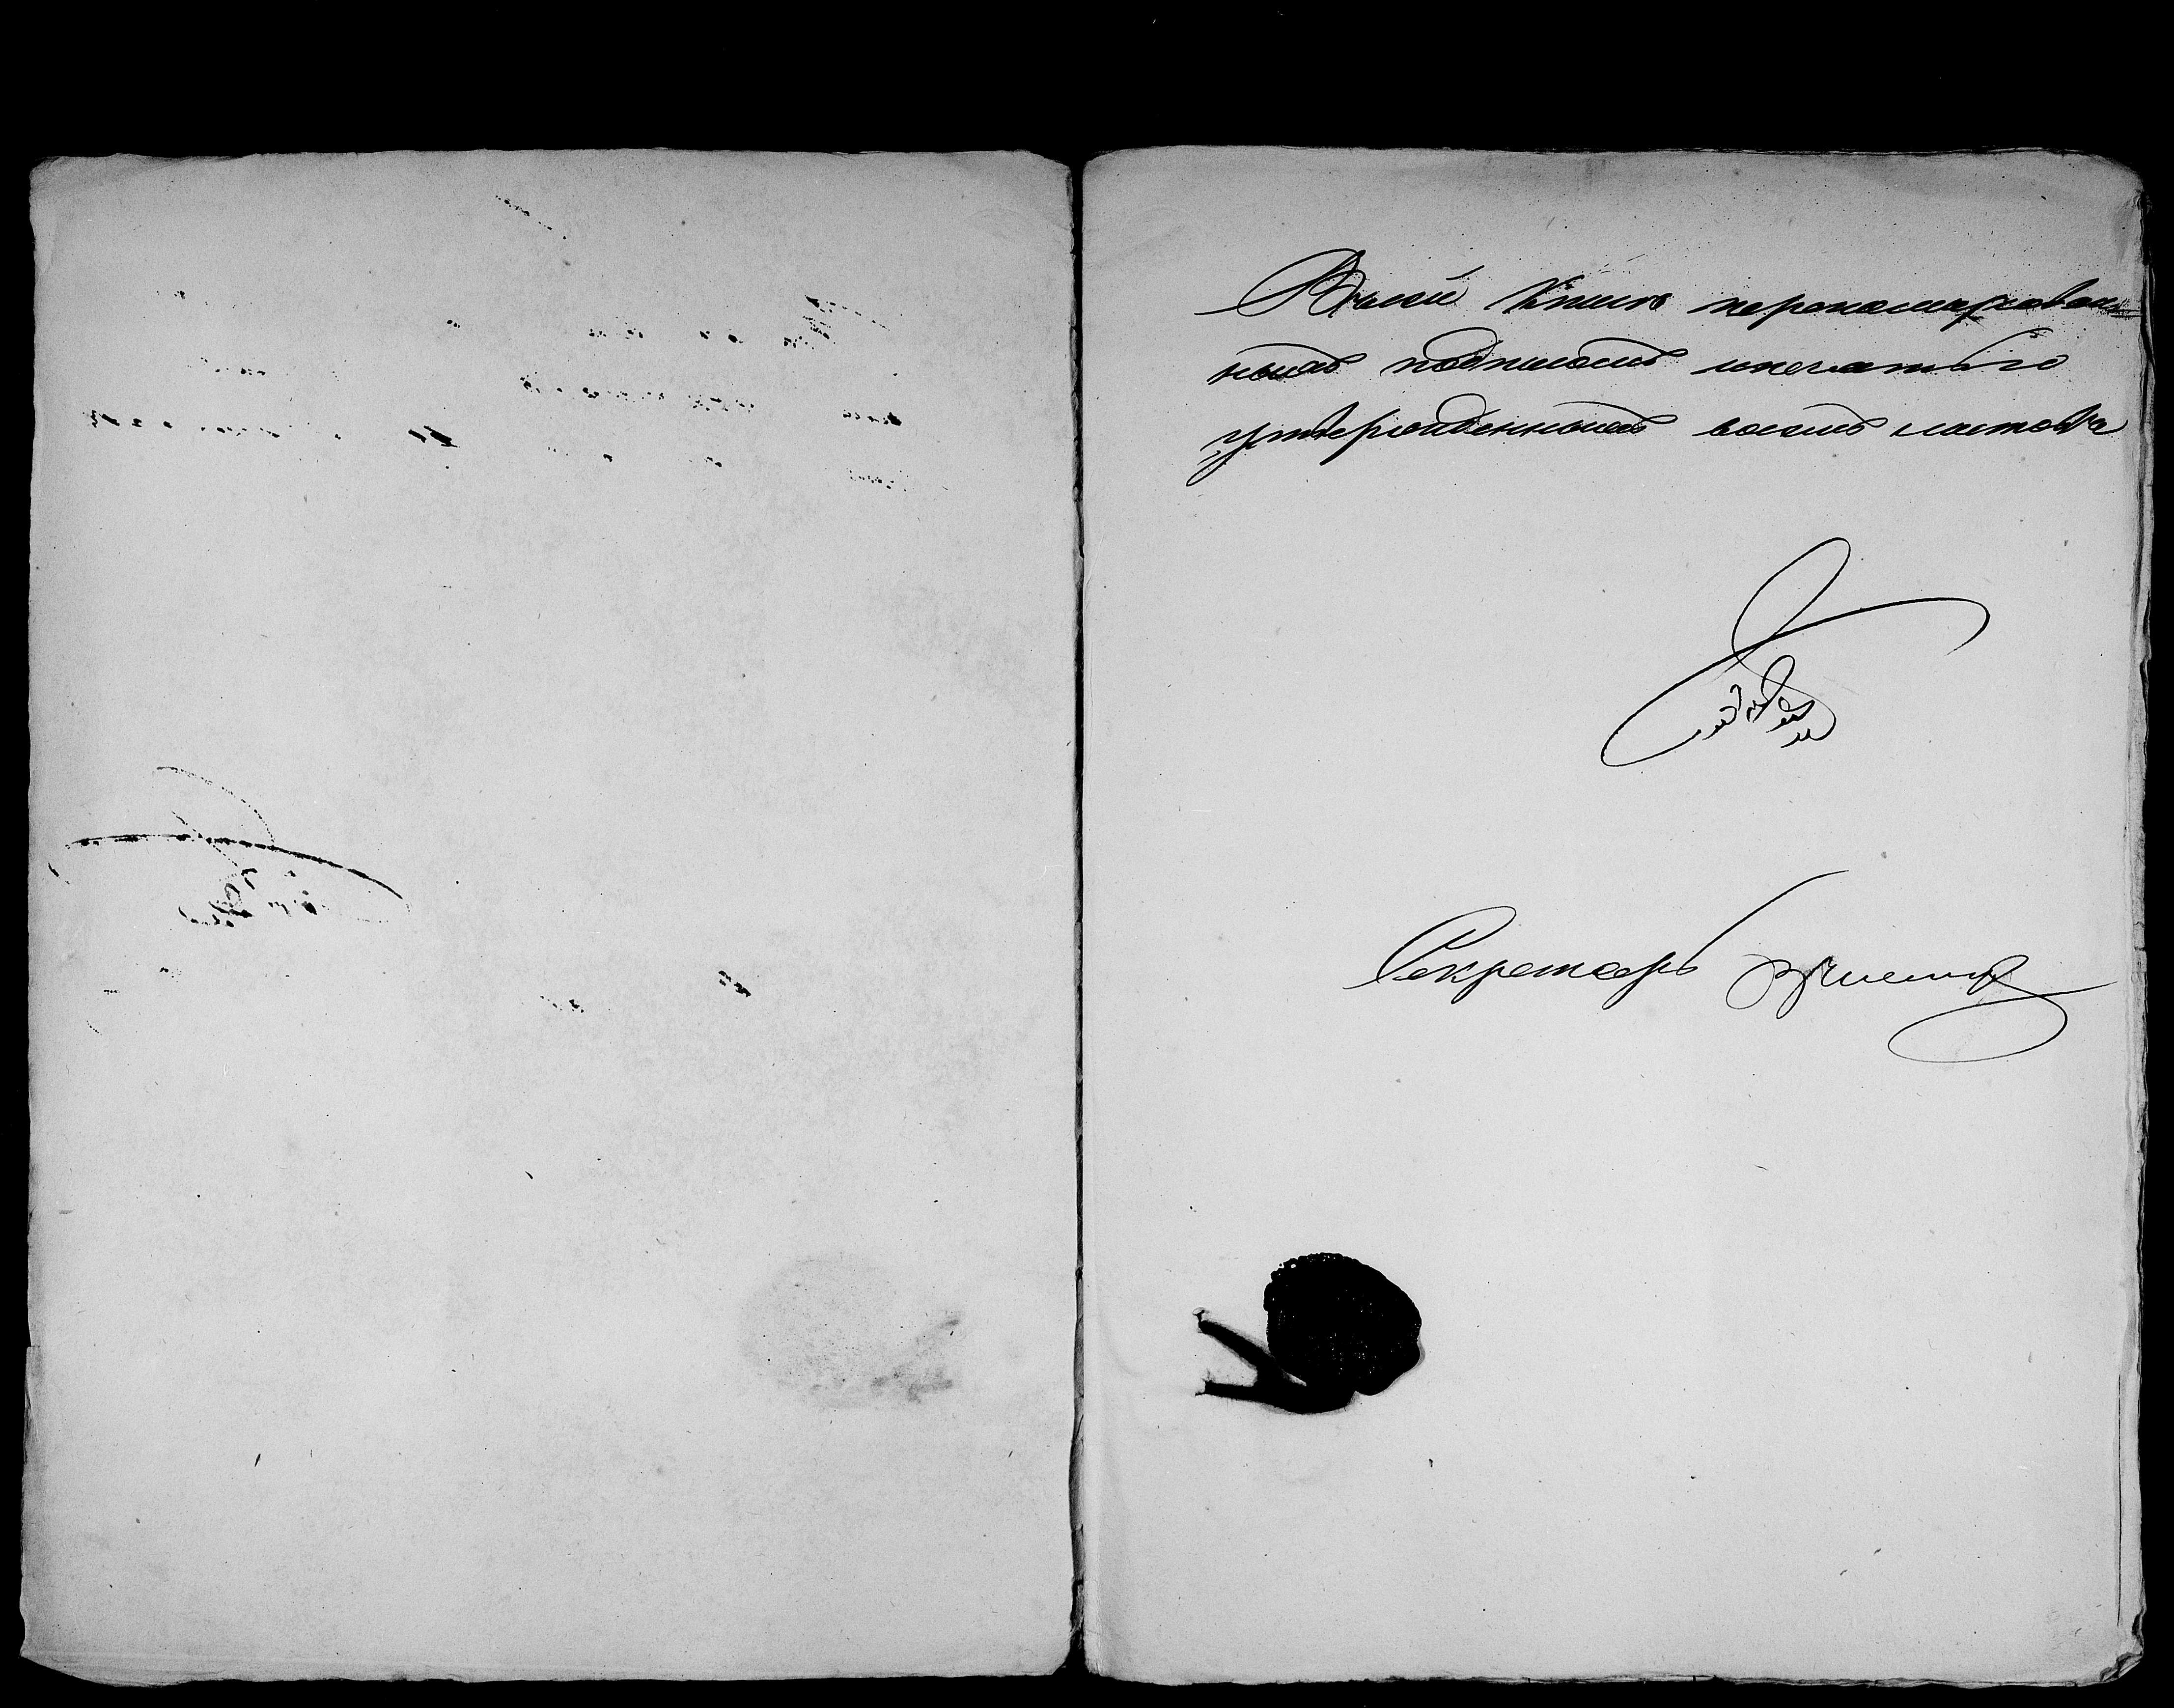 Всей Книге перенумерован=
ныхъ подписомъ ипечатью
утвержденныхъ восемь листовъ
Секретарь